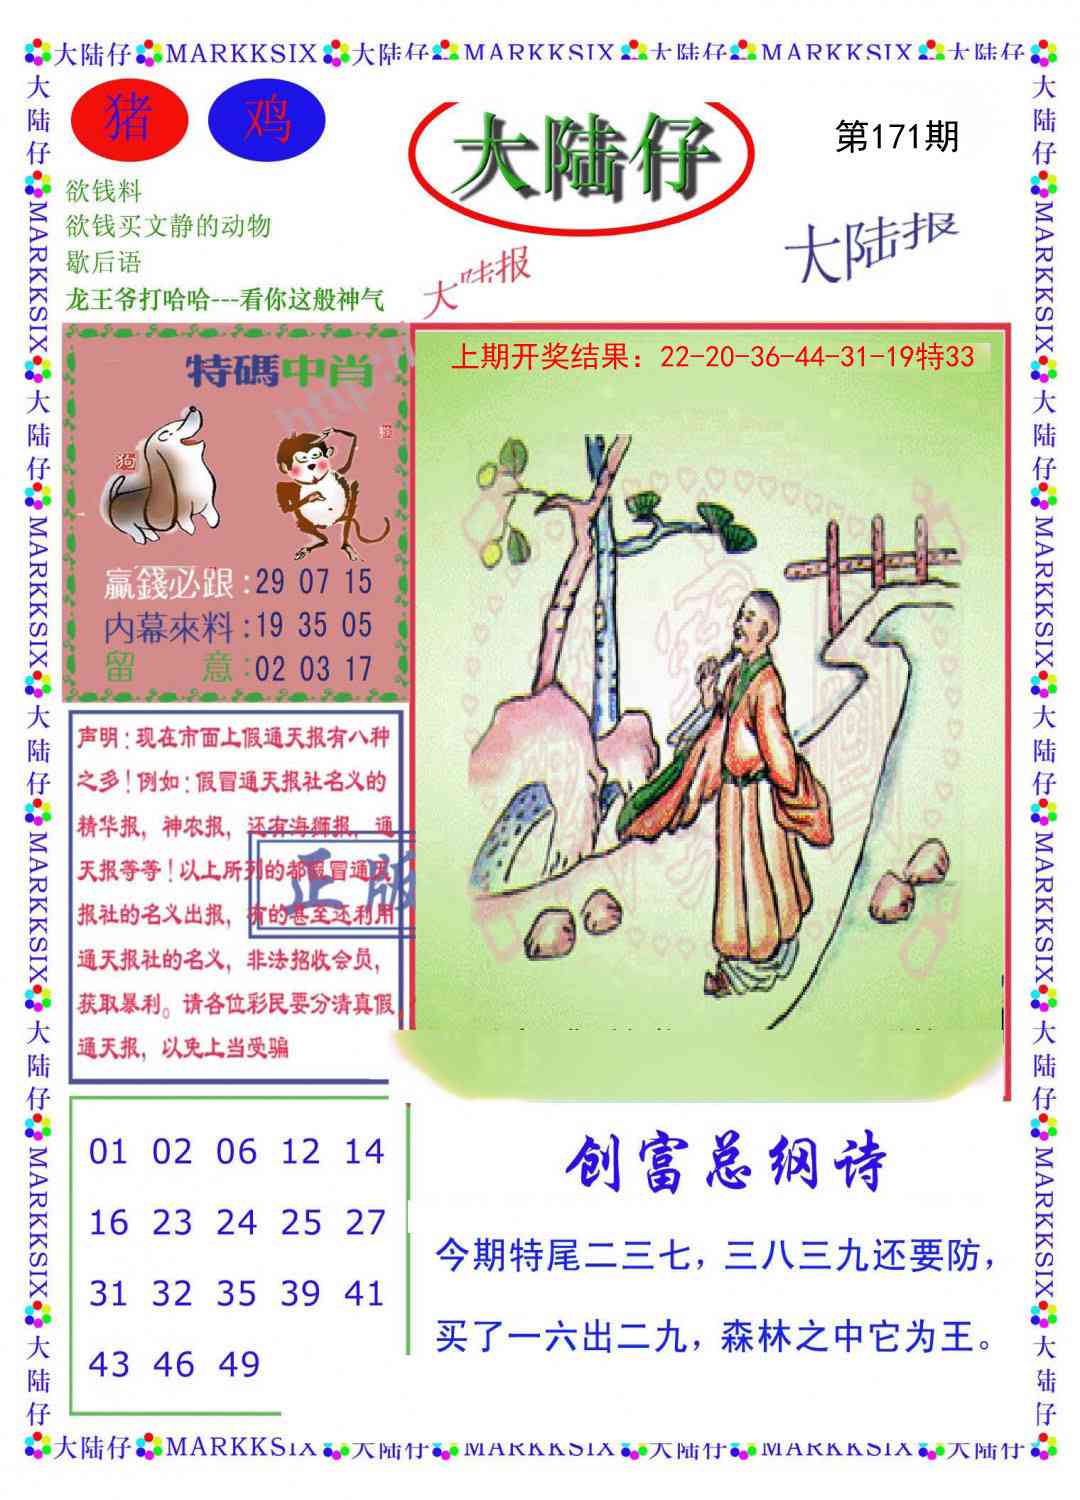 大陆仔 MARKKSIX 大陆仔 MARKKSIX 大陆仔 MARKKSIX 大陆仔
大陆仔 MARKKSIX 大陆仔 MARKKSIX 大陆仔 MARKKSIX 大陆仔 MARKKSIX 大陆仔
猪 鸡
大陆仔
第171期
欲钱料
欲钱买文静的动物
歇后语
龙王爷打哈哈---看你这般神气
大陆报
大陆报
特碼中肖
狗
猴
赢錢必跟:29 07 15
内幕來料:19 35 05
留 意:02 03 17
上期开奖结果：22-20-36-44-31-19特33
声明:现在市面上假通天报有八种
之多!例如:假冒通天报社名义的
精华报，神农报，还有海狮报，通
天报等等!以上所列的都假冒通天
报社的名义出报，有的甚至还利用
通天报社的名义，非法招收会员，
获取暴利。请各位彩民要分清真假
通天报，以免上当受骗
正版
01 02 06 12 14
16 23 24 25 27
31 32 35 39 41
43 46 49
创富总纲诗
今期特尾二三七，三八三九还要防，
买了一六出二九，森林之中它为王。
大陆仔 MARKKSIX 大陆仔 MARKKSIX 大陆仔 MARKKSIX 大陆仔 MARKKSIX 大陆仔
大陆仔 MARKKSIX 大陆仔 MARKKSIX 大陆仔 MARKKSIX 大陆仔